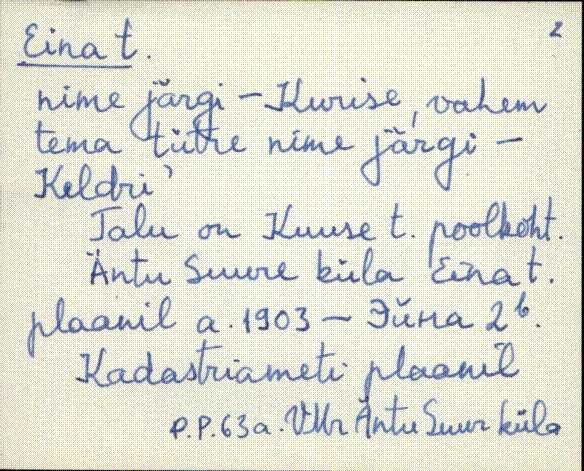 2
Eina t.
nime järgi – Kurise, vahem
tema tütre nime järgi –
Keldri'
Talu on Kuuse t. poolkoht.
Äntu Suure küla Eina t.
plaanil a. 1903 – Эйна 2ᵇ.
Kadastriameti plaanil
P.P. 63a. VMr Äntu Suur küla